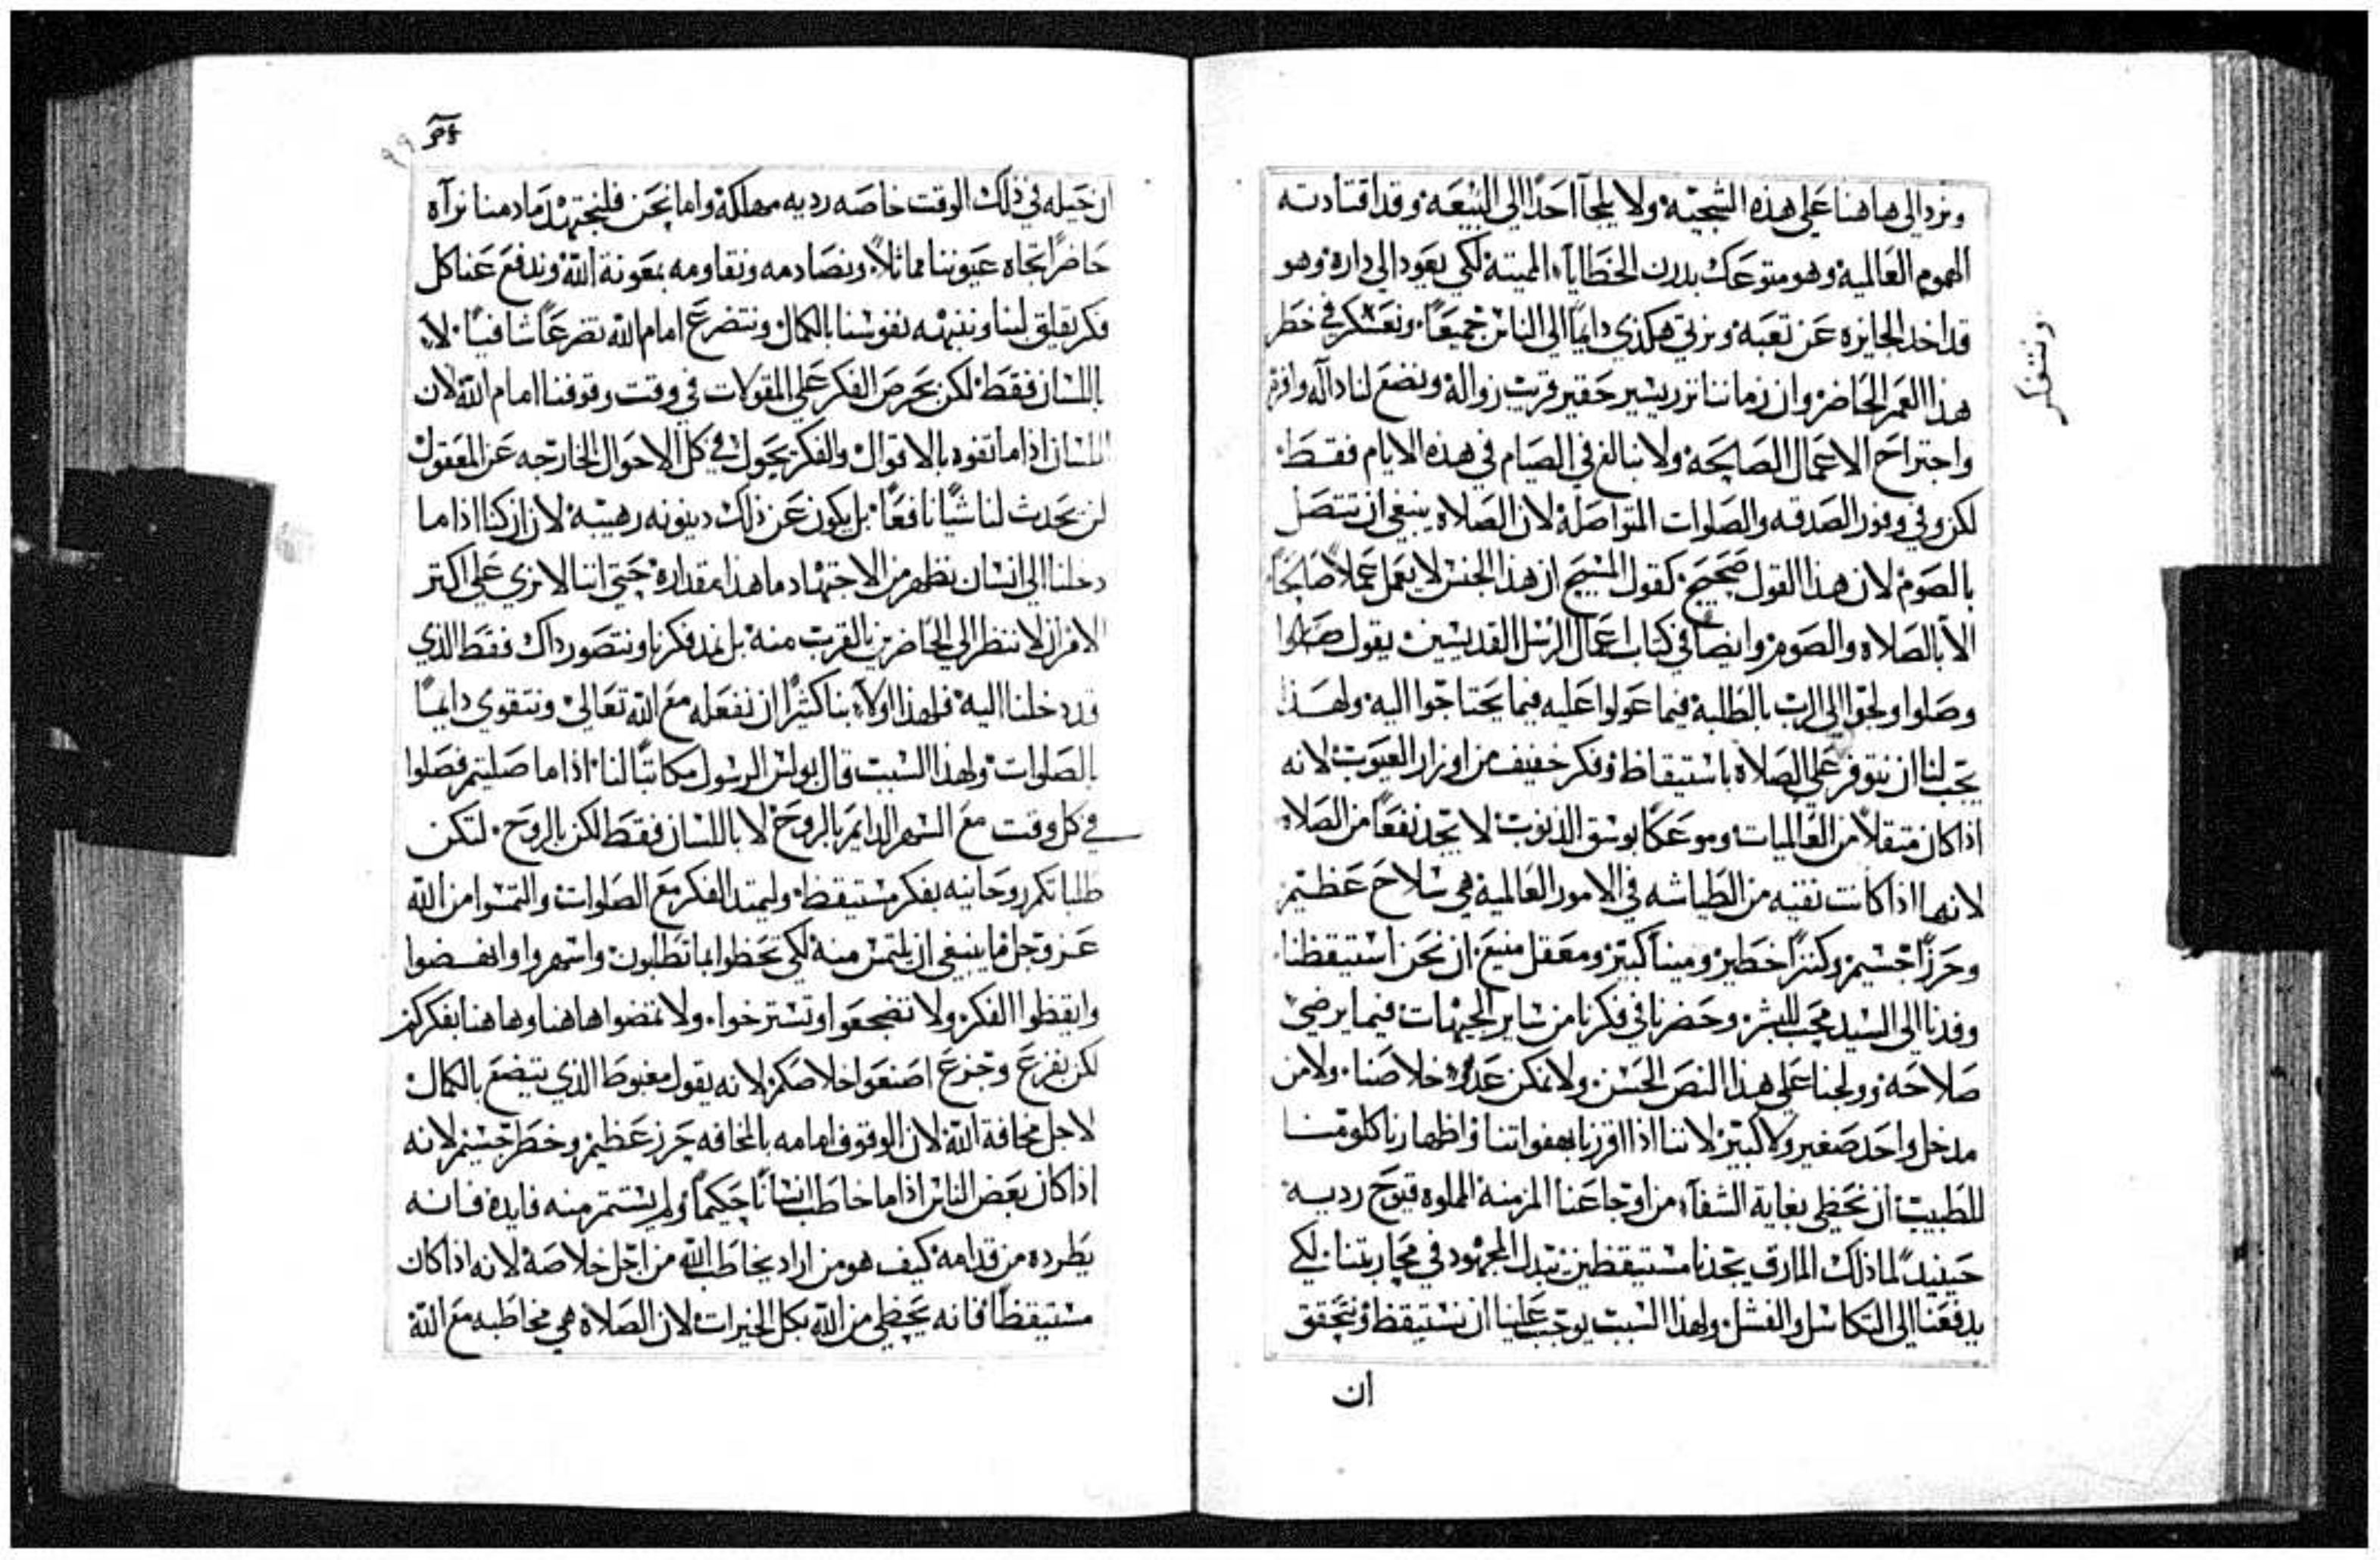 ونرد الى هاهنا على هذه السجيه ولا يلجآ احدًا الى البيعه وقد اقتادته
الهموم العالميه وهو متوعك بدرن الخطايآ المميته لكي يعود الى داره وهو
قد اخد الجايزه عن تعبه ونرتي هكذي دايمًا الى الناس جميعًا ونعسكر في خطر
ونتفكر
هذا العمر الحاضر وان زماننا نزر يسير حقير قريب زواله ونضع لنا داله وافره
واجتراح الاعمال الصالحه ولا نبالغ في الصيام في هذه الايام فقط
لكن وفي وفور الصدقه والصلوات المتواصله لان الصلاه ينبغي ان تتصل
بالصوم لان هذا القول صحيح كقول المسيح ان هذا الجنس لا يعمل عملاً صالحًا
الا بالصلاه والصوم وايضًا في كتاب اعمال الرسل القديسين يقول صاموا
وصلوا ولجوا الى الرب بالطلبه فيما عولوا عليه فيما يحتاجوا اليه ولهذا
يجب لنا ان نتوفر على الصلاة باستيقاظ وفكر خفيف من اوزار العيوب لانه
اذا كان متقلاً من العالميات وموعكًا بوسق الذنوب لا يجد نفعًا من الصلاه
لانها اذا كانت نقيه من الطياشه في الامور العالميه هي سلاح عظيم
وحرزًا جسيم وكنزًا خطير ومينآ كبير ومعقل منيع ان نحن استيقظنا
وفدنا الى السيد محب للبشر وحضرنا في فكرنا من ساير الجيهات فيما يرضي
صلاحه وولجنا على هذا النص الحسن ولا نمكن عدو خلاصنا ولا من
مدخل واحد صغير ولا كبير لاننا اذا اقررنا بهفواتنا واظهارنا كلومنا
للطبيب ان نحظى بغاية الشفآء من اوجاعنا المزمنه المملوه قيوح رديه
حينيدً لما ذلك المارق يجدنا مستيقظين نبدل المجهود في محاربتنا لكي
يدفعنا الى التكاسل والفشل ولهذا السبب يوجب علينا ان نستيقظ ونتحقق
ان
٩٩
ان حيله في ذلك الوقت خاصه رديه مهلكه واما نحن فلنجتهد ما دمنا نرآه
حاضرًا تجاه عيوننا مماثلاً ونصادمه ونقاومه بمعونة الله وندفع عنا كل
فكر يقلق لبنا وننبهه نفوسنا بالكمال ونتضرع امام الله تضرعًا شافيًا لا
باللسان فقط لكن بحرص الفكر على المقولات في وقت وقوفنا امام الله لان
اللسان اذا ما تفوه بالاقوال والفكر يجول في كل الاحوال الخارجه عن المعقول
لن يحدث لنا شيًا نافعًا بل يكون عن ذلك دينونه رهيبه لان ان كنا اذا ما
دخلنا الى انسان نظهر من الاجتهاد ما هذا مقداره حتى اننا لا نري على اكتر
الامر ان لا ننظر الى الحاضرين بالقرب منه بل نمد فكرنا ونتصور داك فقط الذي
قد دخلنا اليه فلهذا اولآ بنا كثيرًا ان نفعله مع الله تعالى ونتقوى دايمًا
بالصلوات ولهذا السبب قال بولس الرسول مكاتبًا لنا اذا ما صليتم فصلوا
في كل وقت مع السهر الدايم بالروح لا باللسان فقط لكن بالروح لتكن
طلباتكم روحانيه بفكر مستيقظ وليمتد الفكر مع الصلوات والتمسوا من الله
عز وجل ما ينبغي ان يلتمس منه لكي تحظوا بما تطلبون واسهروا وانهضوا
وايقظوا الفكر ولا تضجعوا وتسترخوا ولا تمضوا هاهنا وهاهنا بفكركم
لكن بفزع وجزع اصنعوا خلاصكم لانه يقول مغبوط الذي يتضع بالكمال
لاجل مخافة الله لان الوقوف امامه بالمخافه حرز عظيم وخطر جسيم لانه
اذا كان بعض الناس اذا ما خاطب انسانًا حكيمًا ولم يستمر منه فايده فانه
يطرده من قدامه كيف هو من اراد يخاطب الله من اجل خلاصه لانه اذا كان
مستيقظًا فانه يحظى من الله بكل الخيرات لان الصلاه هي مخاطبه مع الله